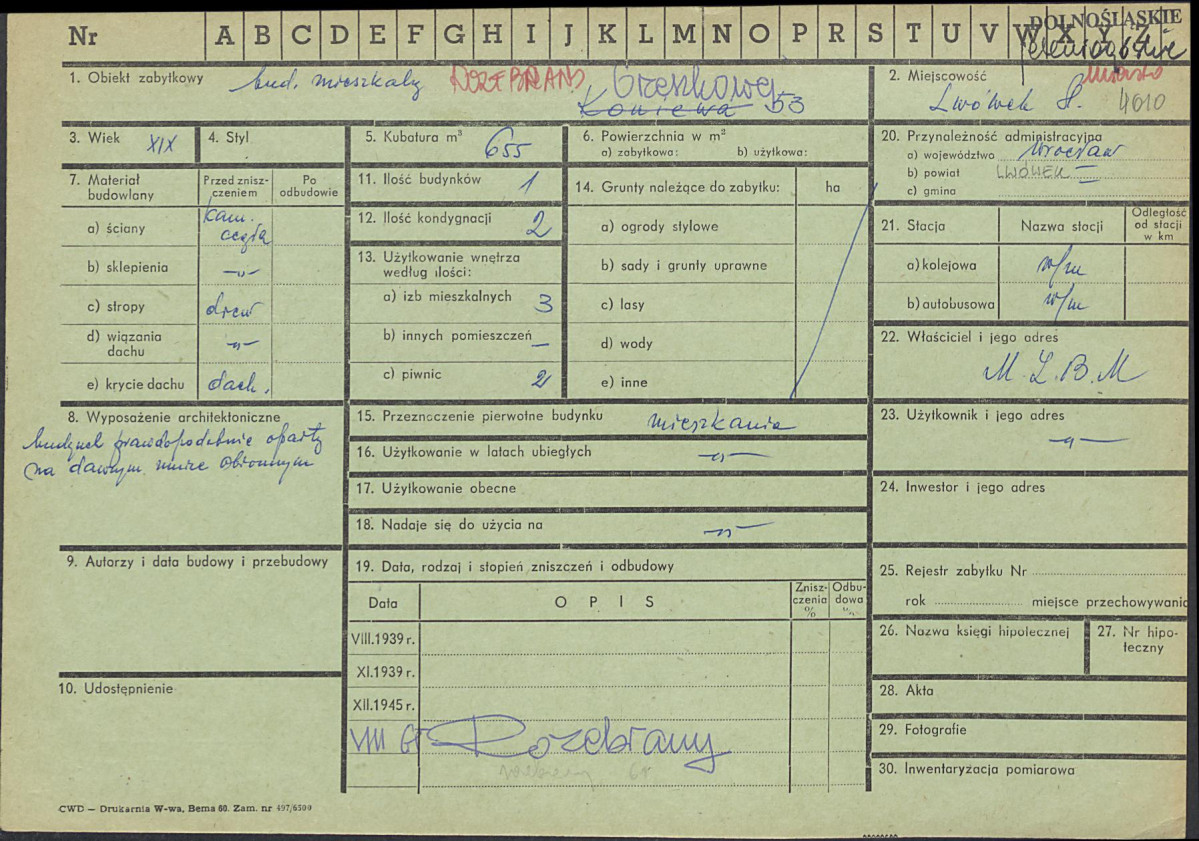 DOLNOŚLĄSKIE
Nr A B C D E F G H I J K L M N O P R S T U V W X Y Z
1. Obiekt zabytkowy bud. mieszkalny ROZEBRANY Orzeszkowej
Koniewa 53
2. Miejscowość miasto
Lwówek Śl. 4610
3. Wiek XIX
4. Styl
5. Kubatura m³ 655
6. Powierzchnia w m²
a) zabytkowa: b) użytkowa:
20. Przynależność administracyjna
a) województwo Wrocław
b) powiat LWÓWEK
c) gmina
7. Materiał budowlany
Przed znisz-
czeniem
Po
odbudowie
a) ściany kam.
cegła
b) sklepienia —„—
c) stropy drew
d) wiązania
dachu —„—
e) krycie dachu dach.
11. Ilość budynków 1
12. Ilość kondygnacji 2
13. Użytkowanie wnętrza
według ilości:
a) izb mieszkalnych 3
b) innych pomieszczeń —
c) piwnic 2
14. Grunty należące do zabytku: ha
a) ogrody stylowe
b) sady i grunty uprawne
c) lasy
d) wody
e) inne
21. Stacja Nazwa stacji
Odległość
od stacji
w km
a) kolejowa w/m
b) autobusowa w/m
22. Właściciel i jego adres
M.Z.B.M
8. Wyposażenie architektoniczne
budynek prawdopodobnie oparty
na dawnym murze obronnym
15. Przeznaczenie pierwotne budynku mieszkania
16. Użytkowanie w latach ubiegłych —„—
17. Użytkowanie obecne
18. Nadaje się do użycia na —„—
23. Użytkownik i jego adres
—„—
24. Inwestor i jego adres
9. Autorzy i data budowy i przebudowy
19. Data, rodzaj i stopień zniszczeń i odbudowy
Data OPIS
Znisz-
czenia
%
Odbu-
dowa
"„
VIII.1939 r.
XI.1939 r.
XII.1945 r.
VIII Rozebrany
10. Udostępnienie
25. Rejestr zabytku Nr
rok miejsce przechowywania
26. Nazwa księgi hipotecznej
27. Nr hipo-
teczny
28. Akta
29. Fotografie
30. Inwentaryzacja pomiarowa
CWD — Drukarnia W-wa, Bema 60. Zam. nr 497/6500